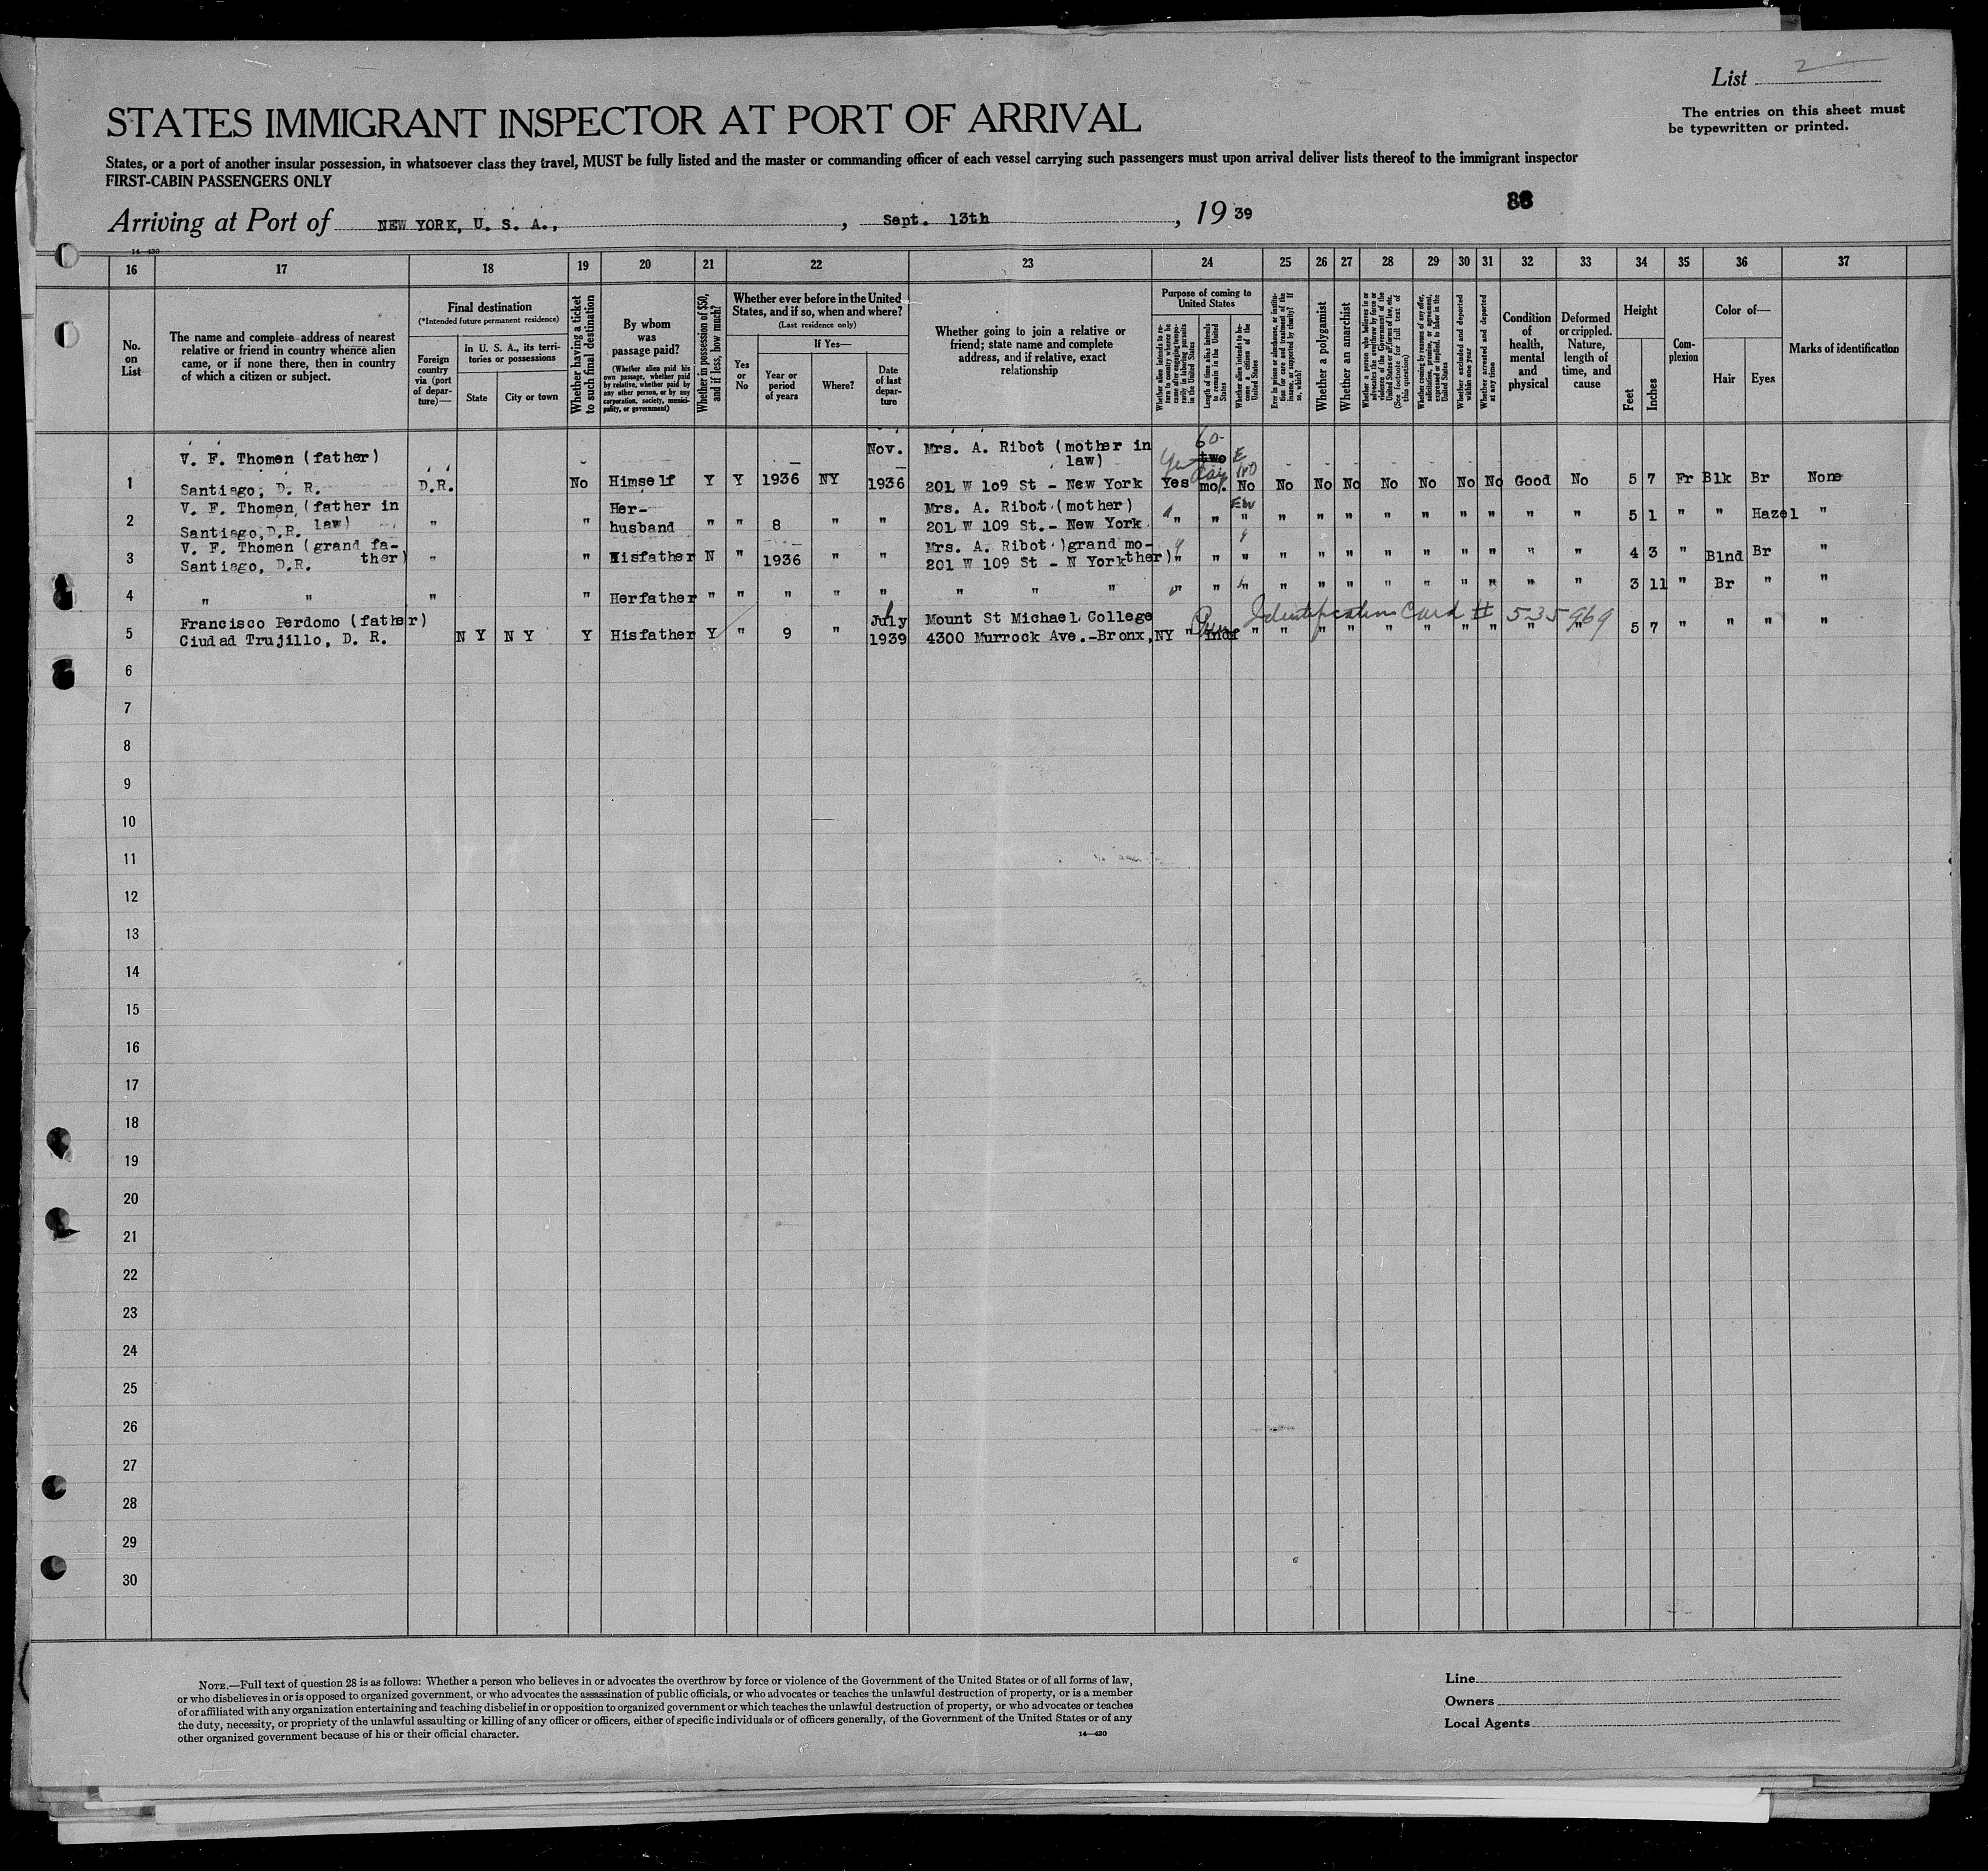 List 2
STATES IMMIGRANT INSPECTOR AT PORT OF ARRIVAL
The entries on this sheet must
be typewritten or printed.
States, or a port of another insular possession, in whatsoever class they travel, MUST be fully listed and the master or commanding officer of each vessel carrying such passengers must upon arrival deliver lists thereof to the immigrant inspector
FIRST-CABIN PASSENGERS ONLY
88
Arriving at Port of NEW YORK, U. S. A., , Sept. 13th , 19 39
14—430
16 17 18 19 20 21 22 23 24 25 26 27 28 29 30 31 32 33 34 35 36 37
No.
on
List
The name and complete address of nearest
relative or friend in country whence alien
came, or if none there, then in country
of which a citizen or subject.
Final destination
(*Intended future permanent residence)
Foreign
country
via (port
of depar-
ture)—
In U. S. A., its terri-
tories or possessions
State
City or town
Whether having a ticket
to such final destination
By whom
was
passage paid?
(Whether alien paid his
own passage, whether paid
by relative, whether paid by
any other person, or by any
corporation, society, munici-
pality, or government)
Whether in possession of $50,
and if less, how much?
Whether ever before in the United
States, and if so, when and where?
(Last residence only)
Yes
or
No
If Yes—
Year or
period
of years
Where?
Date
of last
depar-
ture
Whether going to join a relative or
friend; state name and complete
address, and if relative, exact
relationship
Purpose of coming to
United States
Whether alien intends to re-
turn to country whence he
came after engaging tempo-
rarily in laboring pursuits
in the United States
Length of time alien intends
to remain in the United
States
Whether alien intends to be-
come a citizen of the
United States
Ever in prison or almshouse, or institu-
tion for care and treatment of the
insane, or supported by charity? If
so, which?
Whether a polygamist
Whether an anarchist
Whether a person who believes in or
advocates the overthrow by force or
violence of the Government of the
United States or all forms of law, etc.
(See footnote for full text of
this question)
Whether coming by reasons of any offer,
solicitation, promise, or agreement,
expressed or implied, to labor in the
United States
Whether excluded and deported
within one year
Whether arrested and deported
at any time
Condition
of
health,
mental
and
physical
Deformed
or crippled.
Nature,
length of
time, and
cause
Height
Feet
Inches
Com-
plexion
Color of—
Hair
Eyes
Marks of identification
V. F. Thomen (father) Nov. Mrs. A. Ribot (mother in 60
law) two
1 Santiago, D. R. D.R. No Himself Y Y 1936 NY 1936 201 W 109 St - New York Yes mo. No No No No No No No No Good No 5 7 Fr Blk Br None
V. F. Thomen (father in Her- Mrs. A. Ribot (mother)
2 Santiago,D.R. law) " " husband " " 8 " " 201 W 109 St.- New York " " " " " " " " " " " " 5 1 " " Hazel "
V. F. Thomen (grand fa- Mrs. A. Ribot )grand mo-
3 Santiago, D.R. ther) " " Hisfather N " 1936 " " 201 W 109 St - N York ther) " " " " " " " " " " " " 4 3 " Blnd Br "
4 " " " " Herfather " " " " " " " " " " " " " " " " " " " " " 3 11 " Br " "
Francisco Perdomo (father) July Mount St Michael College Identification Card # 535969
5 Ciudad Trujillo, D. R. N Y N Y Y Hisfather Y " 9 " 1939 4300 Murrock Ave.-Bronx,NY " Indf " " " " " " " " " " 5 7 " " " "
6
7
8
9
10
11
12
13
14
15
16
17
18
19
20
21
22
23
24
25
26
27
28
29
30
NOTE.—Full text of question 28 is as follows: Whether a person who believes in or advocates the overthrow by force or violence of the Government of the United States or of all forms of law,
or who disbelieves in or is opposed to organized government, or who advocates the assassination of public officials, or who advocates or teaches the unlawful destruction of property, or is a member
of or affiliated with any organization entertaining and teaching disbelief in or opposition to organized government or which teaches the unlawful destruction of property, or who advocates or teaches
the duty, necessity, or propriety of the unlawful assaulting or killing of any officer or officers, either of specific individuals or of officers generally, of the Government of the United States or of any
other organized government because of his or their official character.
14—430
Line
Owners
Local Agents